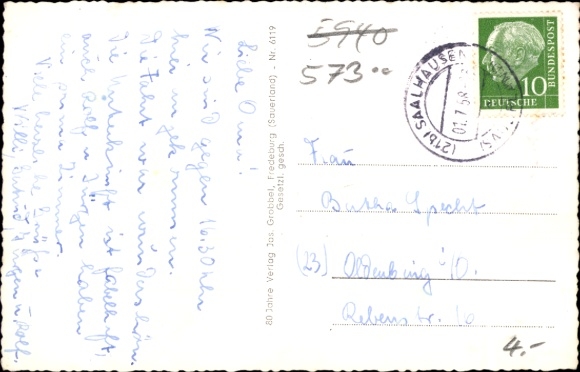 Liebe Omi!
Wir sind gegen 16.30 Uhr
hier angekommen.
Die Fahrt war wunderschön.
Die Unterkunft ist fabelhaft,
auch Rolf u. Jürgen haben
ein prima Zimmer.
Viele herzliche Grüße
Willi Jürgen u. Rolf.
80 Jahre Verlag Jos. Grobbel, Fredeburg (Sauerland) . Nr. 6119
Gesetzl. gesch.
5940
573
(21b) SAALHAUSEN
01.7.58
10
DEUTSCHE
BUNDESPOST
Frau
Bertha Specht
(23) Oldenburg i/O.
Rebenstr. 16
4.-